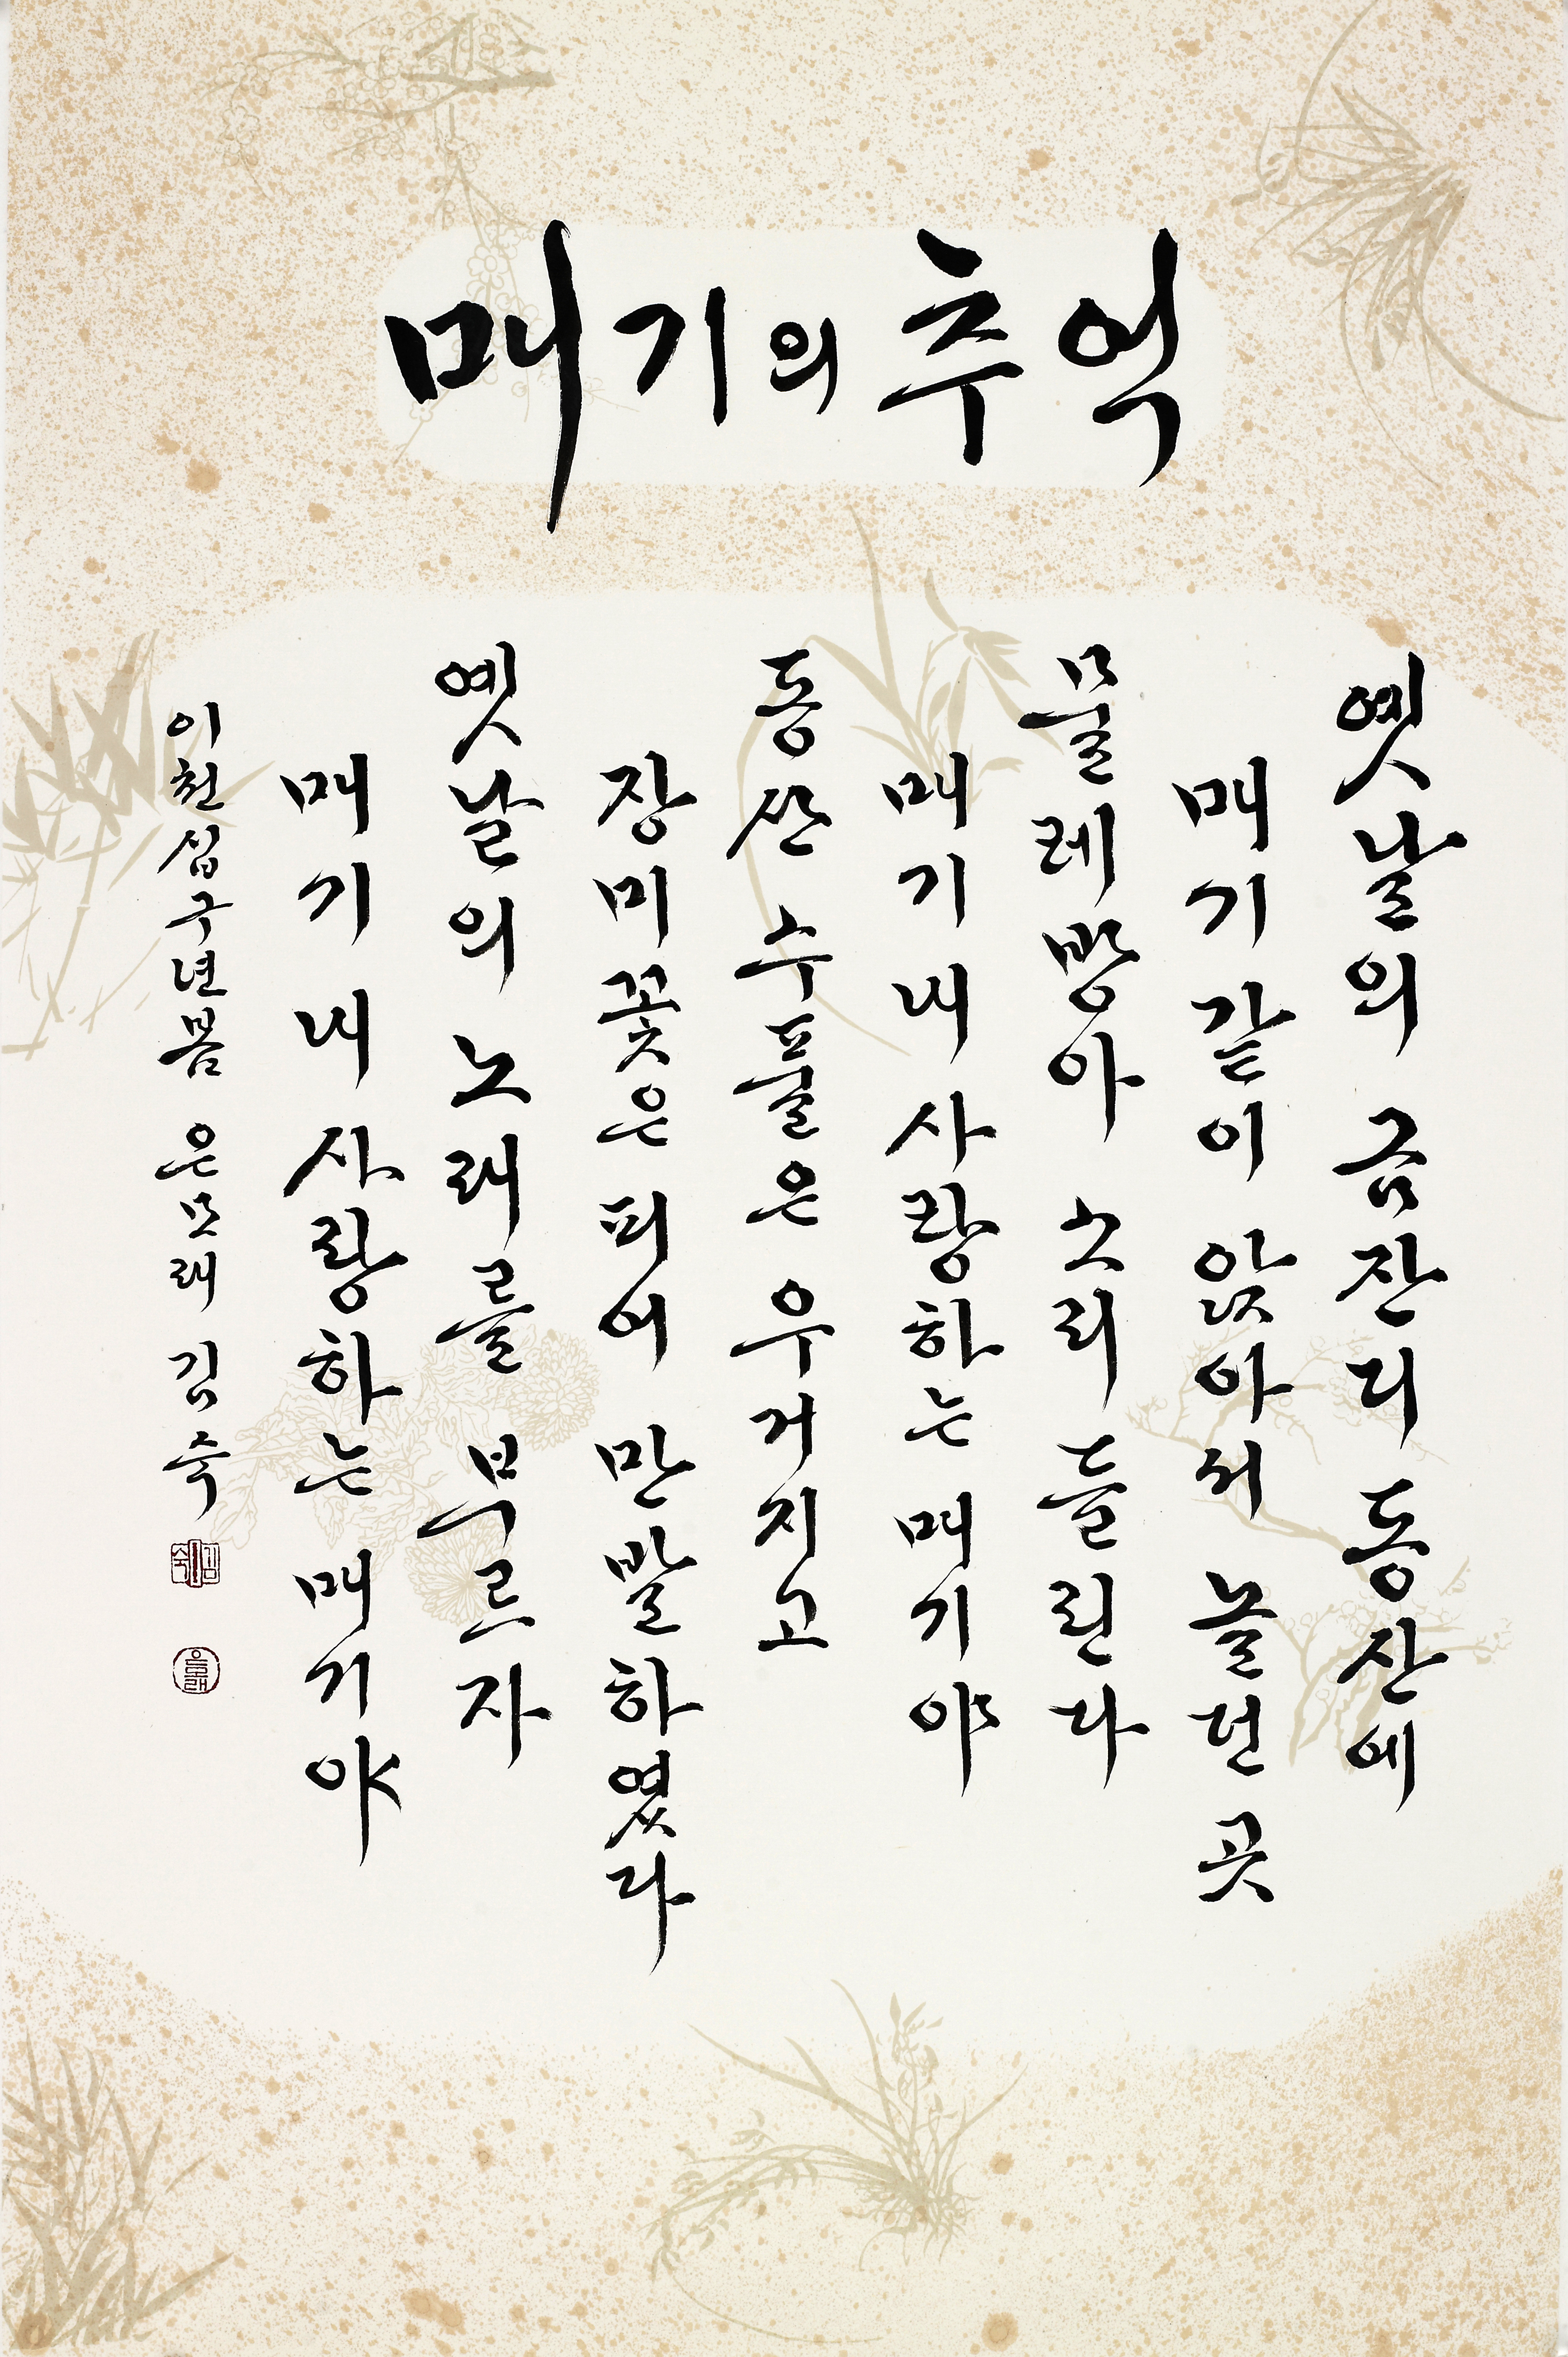 매기의 추억
옛날의 금잔디 동산에
매기 같이 앉아서 놀던 곳
물레방아 소리 들린다
매기 내 사랑하는 매기야
동산 수풀은 우거지고
장미꽃은 피여 만발하였다
옛날의 노래를 부르자
매기 내 사랑하는 매기야
이천십구년봄 은모래 김숙